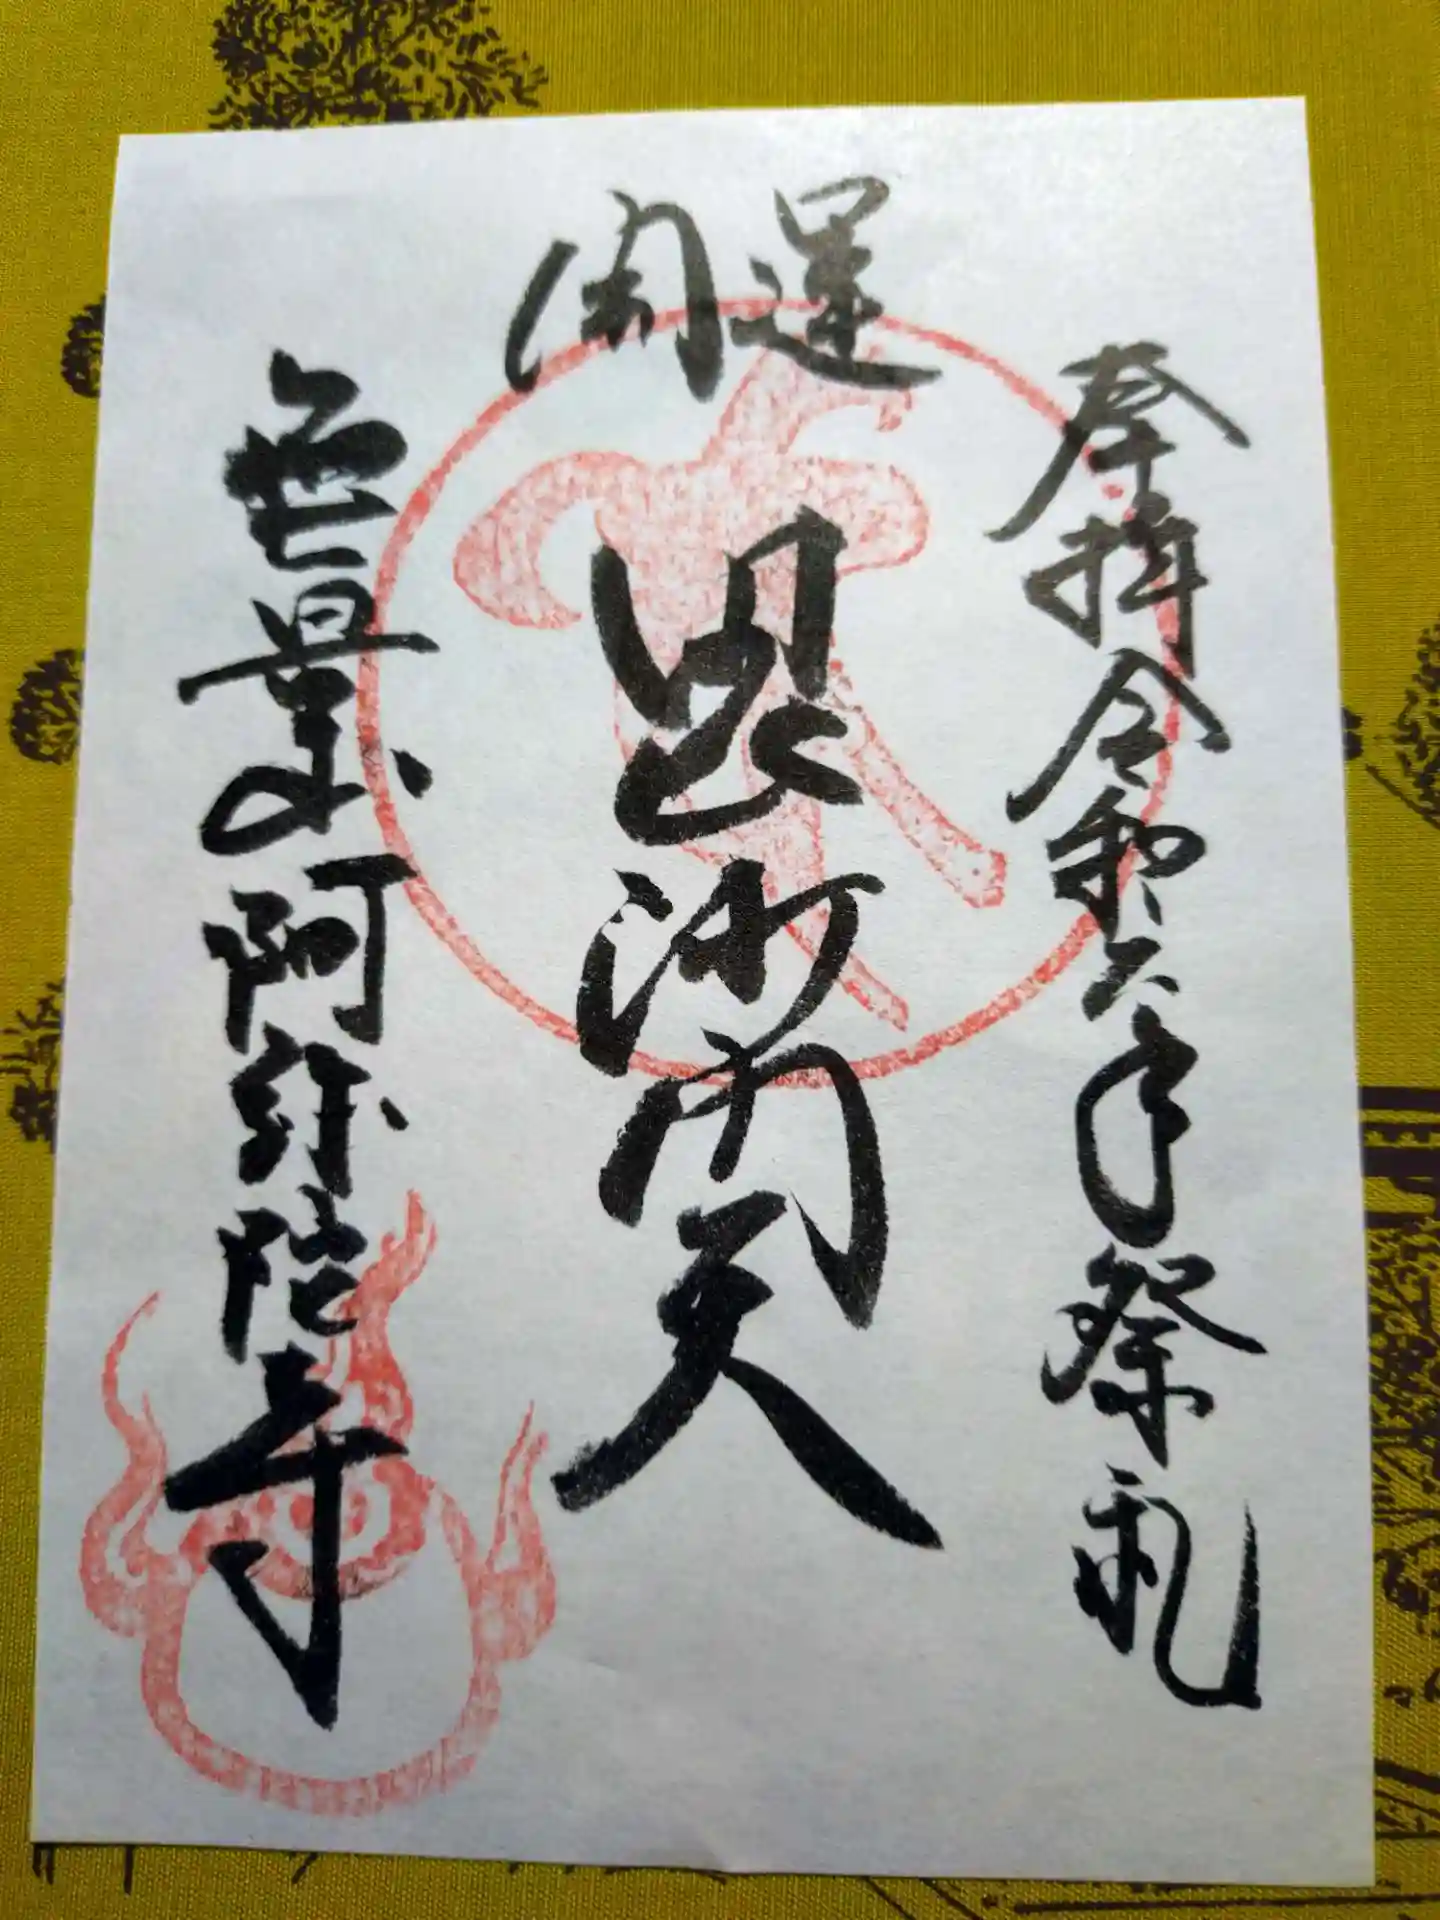 奉拝 令和六年 祭礼
開運
毘沙門天
無量山 阿弥陀寺